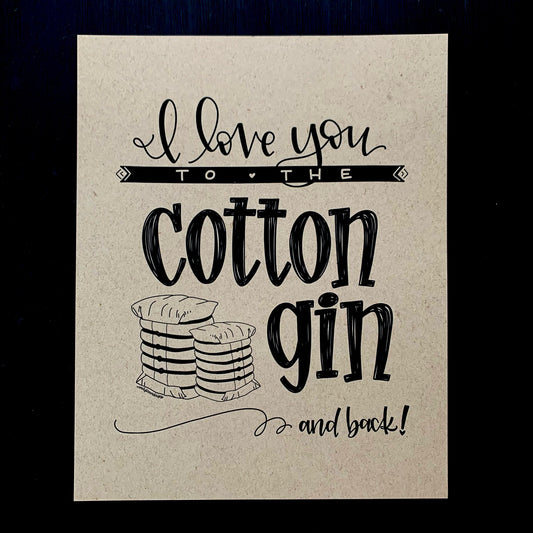 I love you
TO ♥ THE
cotton
gin
and back!